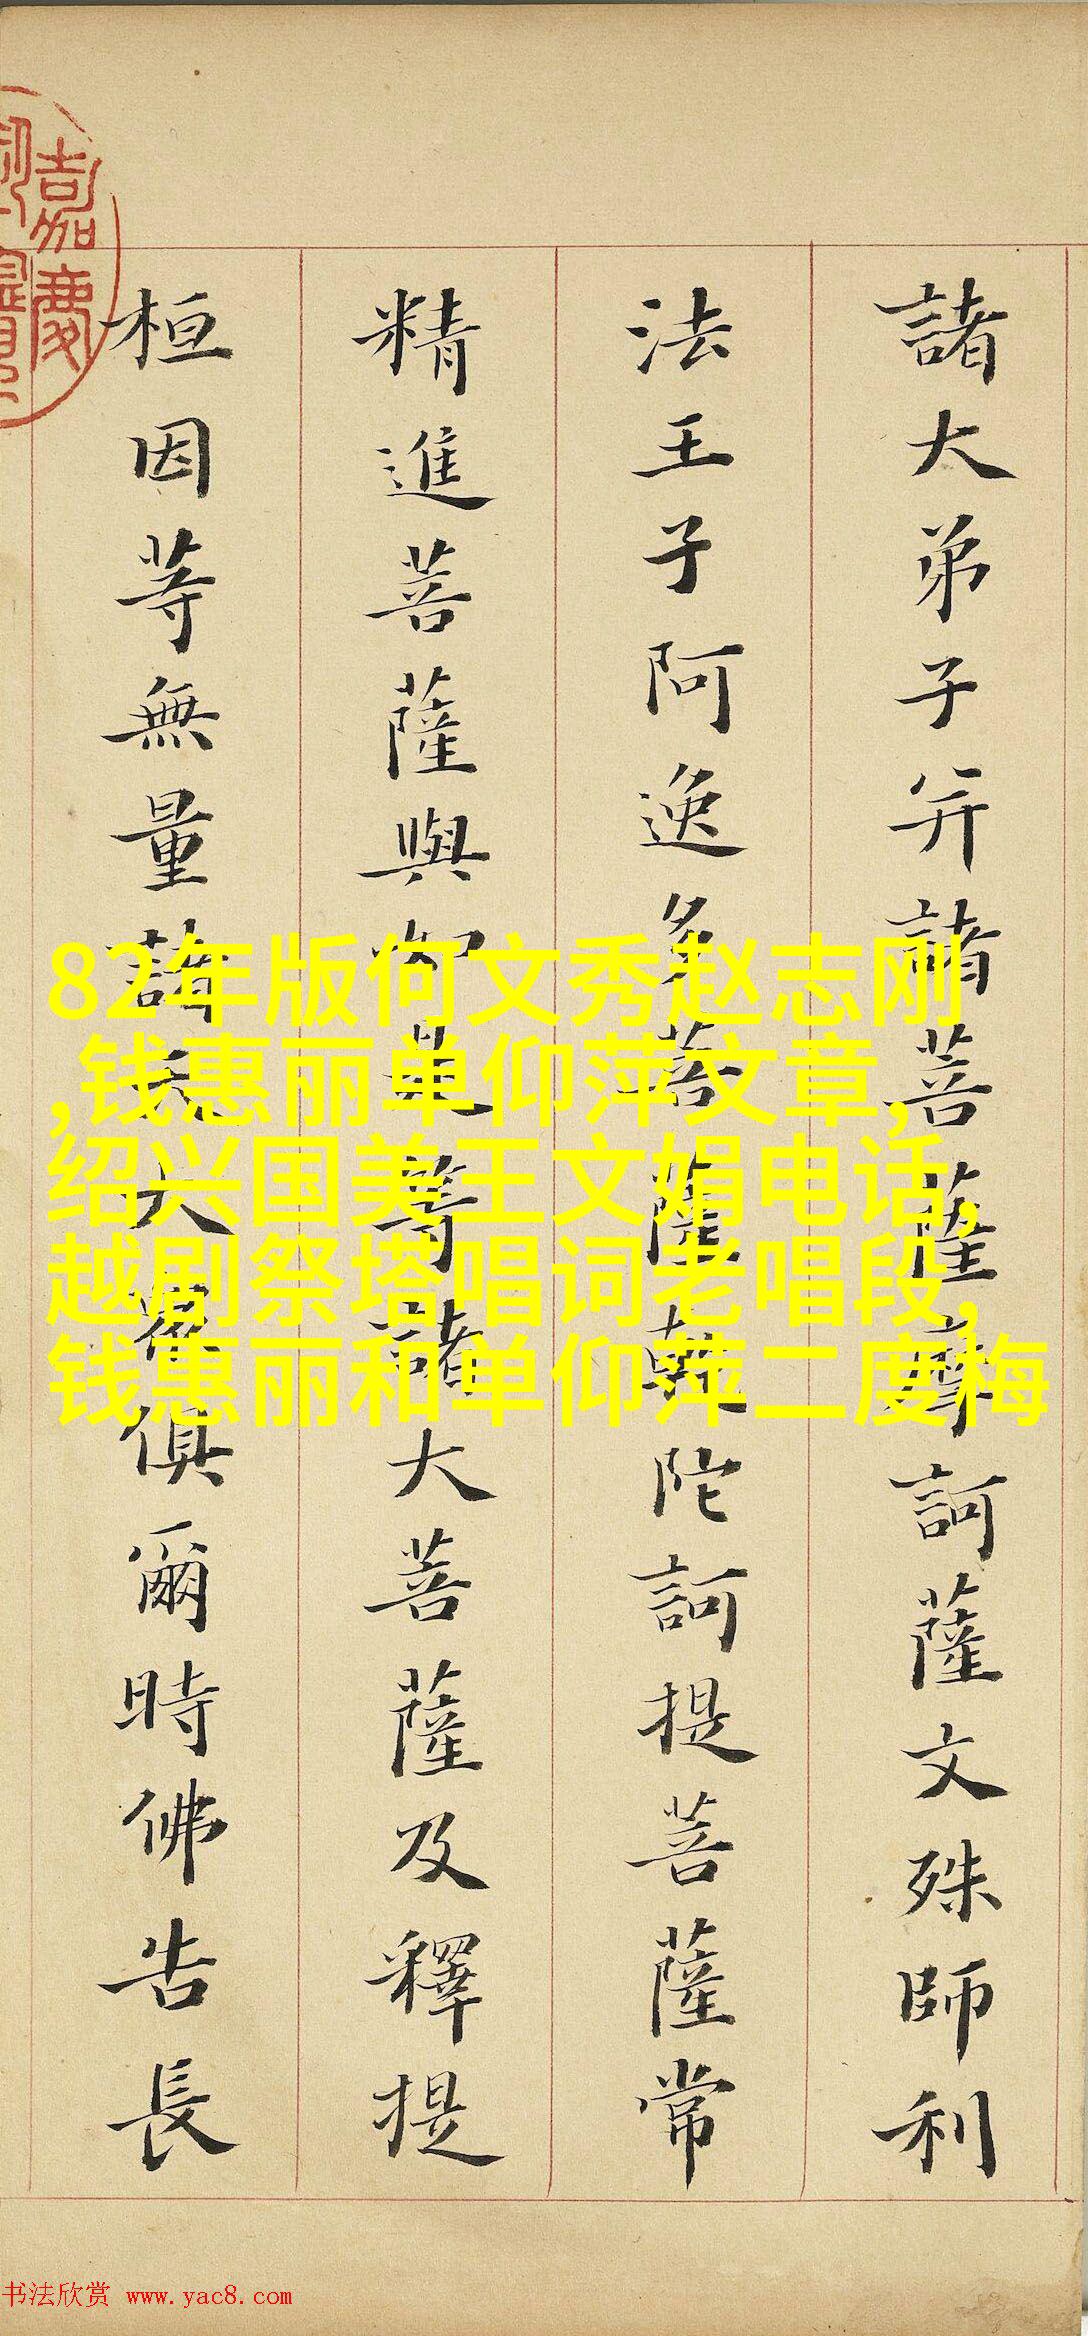 諸大弟子并諸菩薩摩訶薩文殊師利
法王子阿逸多菩薩乾陀訶提菩薩常
精進菩薩與如是等諸大菩薩及釋提
桓因等無量諸天大眾俱爾時佛告長
嘉慶
82年版何文秀赵志刚
,钱惠丽单仰萍文章,
绍兴国美王文娟电话,
越剧祭塔唱词老唱段,
钱惠丽和单仰萍二度梅
书法欣赏 www.yac8.com